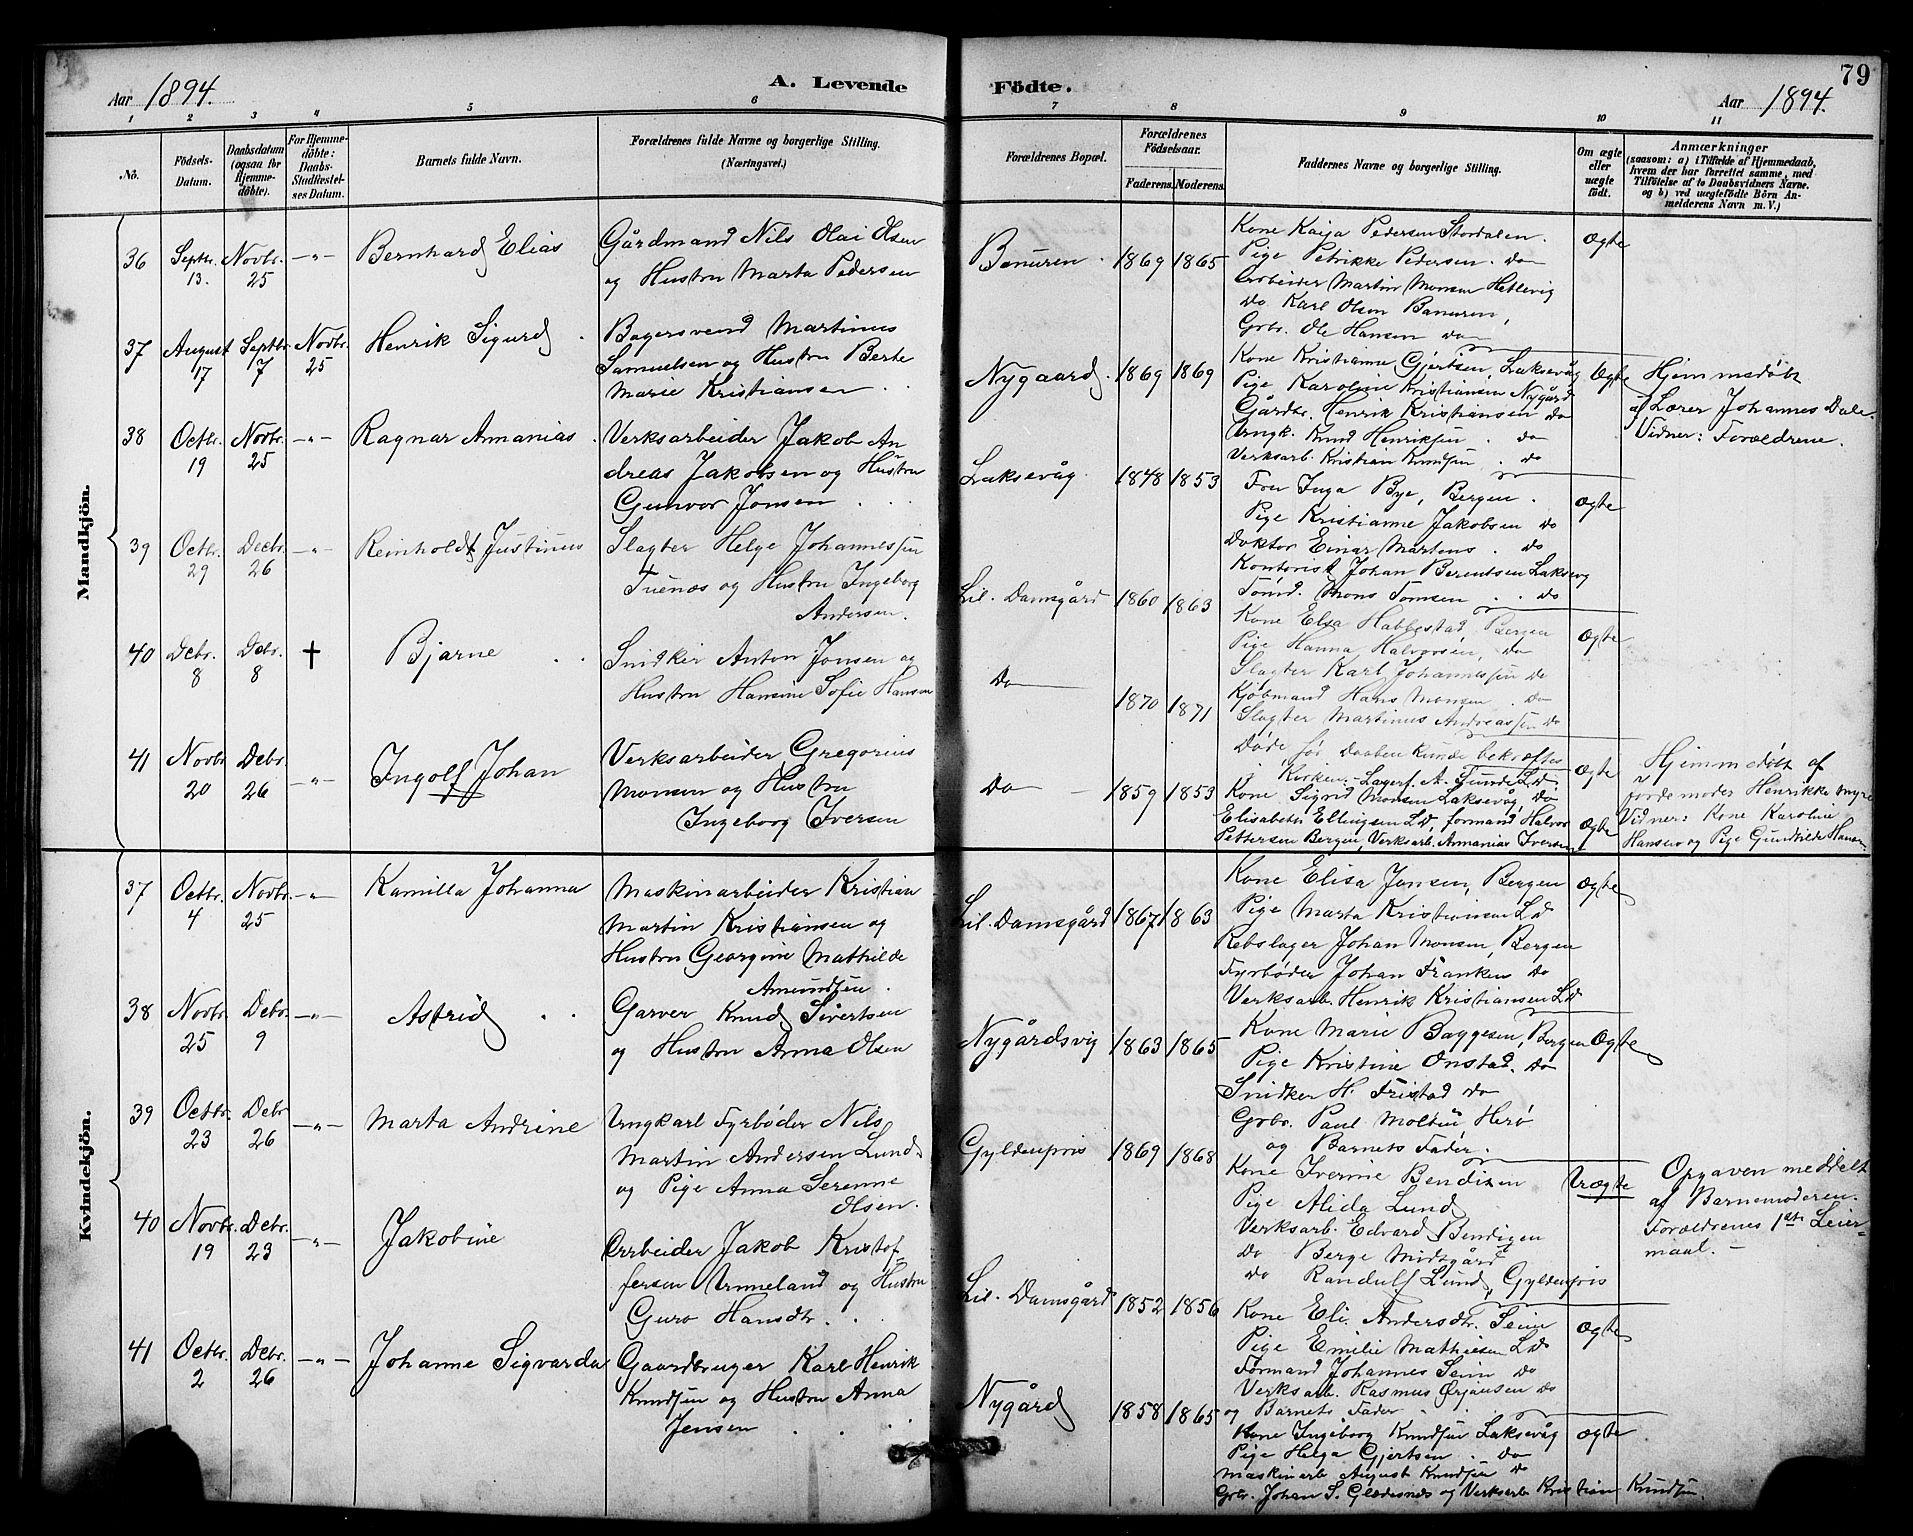 79
Aar 1894. A. Levende Födte. Aar 1894.
1 2 3 4 5 6 7 8 9 10 11
No.
Födsels-
Datum.
Daabsdatum
(ogsaa for
Hjemme-
döbte).
For Hjemme-
döbte:
Daabs-
Stadfæstel-
ses Datum.
Barnets fulde Navn.
Forældrenes fulde Navne og borgerlige Stilling.
(Næringsvei.)
Forældrenes Bopæl.
Forældrenes
Födselsaar.
Faderens. Moderens.
Faddernes Navne og borgerlige Stilling.
Om ægte
eller
uægte
födt.
Anmærkninger
(saasom: a) i Tilfælde af Hjemmedaab,
hvem der har forrettet samme, med
Tilföielse af to Daabsvidners Navne.
og b) ved uægtefödte Börn An-
melderens Navn m. V.)
Mandkjön.
36 Septbr. 13. Novbr. 25 -"- Bernhard Elias
Gårdmand Nils Olai Olsen
og Hustru Marta Pedersen
Banuren 1869 1865
Kone Kaija Pedersen Stordalen.
Pige Petrikke Pedersen. do
Arbeider Martin Monsen Hetlevig
do Karl Olson Banuren,
Grbr. Ole Hansen do
Ægte
37 August 17 Septbr. 7 Novbr. 25 Henrik Sigurd
Bagersvend Martinus
Samuelsen og Hustru Berte
Marie Kristiansen
Nygaard. 1869 1869
Kone Kristianne Gjertsen, Laksevåg
Pige Karoline Kristiansen Nygård
Gårdbr. Henrik Kristiansen do
Ungk. Knud Henriksen. do
Verksarb. Kristian Knudsen. do
Ægte
Hjemmedøbt
af Lærer Johannes Dale.
Vidner: Forældrene.
38 Octbr. 19 Novbr. 25 -"- Ragnar Annanias.
Verksarbeider Jakob An
dreas Jakobsen og Hustru
Gunvor Jonsen
Laksevåg 1848 1853
Fru Inga Bye, Bergen.
Pige Kristianne Jakobsen do
Doktor Einar Martens. do
Kontorist Johan Berentsen Laksevg
Tømd. Mons Tomsen.. do
Ægte
39 Octbr. 29 Decbr. 26 -"- Reinholdt Justinus
Slagter Helge Johannessen
Tuenæs og Hustru Ingeborg
Andersen.
Lil. Damsgård 1860 1863
Kone Elsa Habbestad, Bergen
Pige Hanna Halvorsen, do
Slagter Karl Johannessen do
Kjøbmand Hans Monsen. do
Slagter Martinus Andreassen do
Ægte
40 Debr. 8 Debr. 8 † Bjarne
Snidker Anton Jonsen og
Hustru Hansine Sofie Hansen
Do 1870 1871
Døde før daaben kunde bekræftes
i Kirken. - Lagerf. A. Lunde Ld.
Ægte
Hjemmedøbt af
Jordemoder Henrikke Myre
Vidner: Kone Karoline
Hansen og Pige Gunhilde Hansen
41 Novbr 20 Debr. 26 -"- Ingolf Johan
Verksarbeider Gregorius
Monsen og Hustru
Ingeborg Iversen
Do 1859 1853
Kone Sigrid Monsen Laksevåg, do
Elisabeth Ellingsen Ld, formand Halvor
Pettersen Bergen, Verksarb. Annanias Iversen
Ægte
Kvindekjön.
37 Octbr. 4 Novbr. 25 -"- Kamilla Johanna
Maskinarbeider Kristian
Martin Kristiansen og
Hustru Georgine Mathilde
Amundsen.
Lil. Damsgård 1867 1863
Kone Elisa Jonsen, Bergen
Pige Marta Kristiansen Ld
Rebslager Johan Monsen, Bergen
Fyrbøder Johan Franken do
Verksarb. Henrik Kristiansen Ld
Ægte
38 Novbr. 25 Debr. 9 -"- Astrid
Garver Knud Sivertsen
og Hustru Anna Olsen
Nygårdsvig 1863 1865
Kone Marie Baggesen, Bergen
Pige Kristine Onstad. do
Snidker H. Fristad do
Grbr. Paul Moltu Herø
og Barnets Fader.
Ægte
39 Octbr. 23 Debr 26 -"- Marta Andrine
Ungkarl Fyrbøder Nils
Martin Andersen Lund
og Pige Anna Serenne
Olsen.
Gyldenpris 1869 1868
Kone Iverine Bendixen
Pige Alida Lund
Verksarb. Edvard Bendixen
do Berge Midtgård
do Randulf Lund, Gyldenpris
Uægte
Opgaven meddelt
af Barnemoderen.
Forældrenes 1ste Leier-
maal. -
40 Novbr. 19 Debr. 23 -"- Jakobine
Arbeider Jakob Kristof-
fersen Urmeland og Hustru
Guro Hansdtr.
Lil. Damsgård 1852 1856
Kone Eli. Andersdtr. Seim
Pige Emilie Mathiesen Ld
Formand Johannes Seim do
Verksarb. Rasmus Ørjansen do
og Barnets Fader
Ægte
41 Octbr. 2 Debr. 26 -"- Johanne Sigvarda
Gaardbruger Karl Henrik
Knudsen og Hustru Anna
Jensen
Nygård 1858 1865
Kone Ingeborg Knudsen Laksevåg
Pige Helga Gjertsen. do
Maskinarb August Knudsen do
Grbr. Johan S. Gladesnes og Verksarb Kristian Knudsen.
Ægte